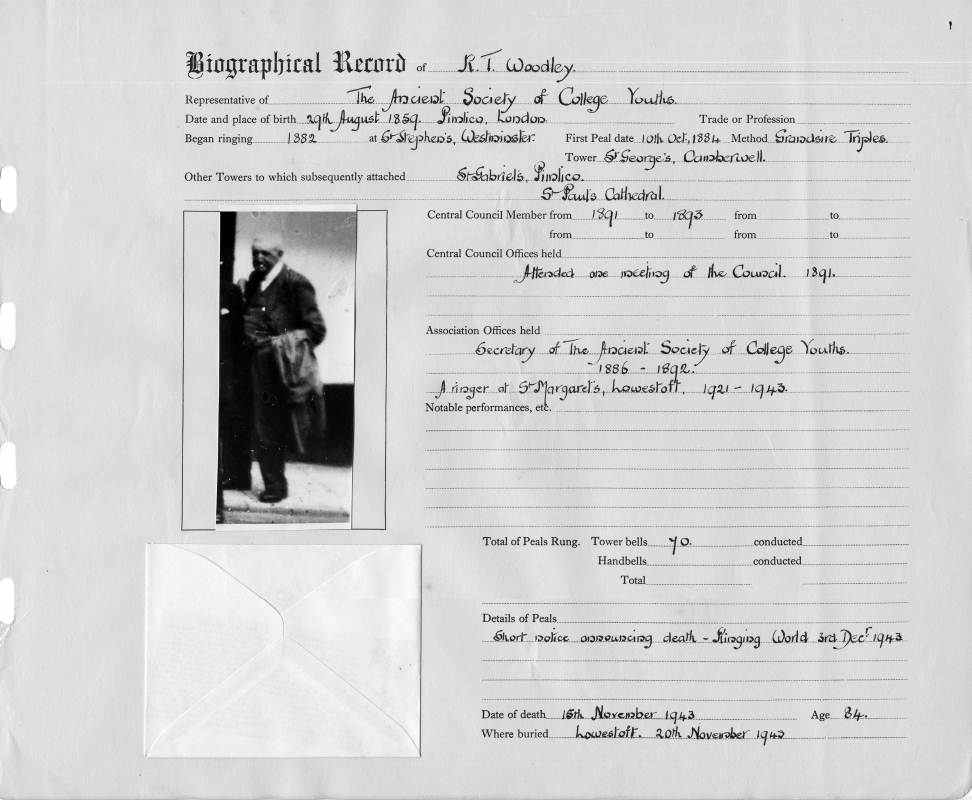 Biographical Record of R. T. Woodley.
Representative of The Ancient Society of College Youths.
Date and place of birth 29th August 1859. Pimlico, London. Trade or Profession
Began ringing 1882 at St Stephen's, Westminster. First Peal date 10th Oct, 1884 Method Grandsire Triples.
Tower St George's, Camberwell.
Other Towers to which subsequently attached St Gabriel's, Pimlico.
St Paul's Cathedral.
Central Council Member from 1891 to 1893 from to
from to from to
Central Council Offices held
Attended one meeting of the Council. 1891.
Association Offices held
Secretary of The Ancient Society of College Youths.
1886 - 1892.
A ringer at St Margaret's, Lowestoft. 1921 - 1943.
Notable performances, etc.
Total of Peals Rung. Tower bells 70. conducted
Handbells conducted
Total
Details of Peals
Short notice announcing death - Ringing World 3rd Decr 1943
Date of death 15th November 1943 Age 84.
Where buried Lowestoft. 20th November 1943